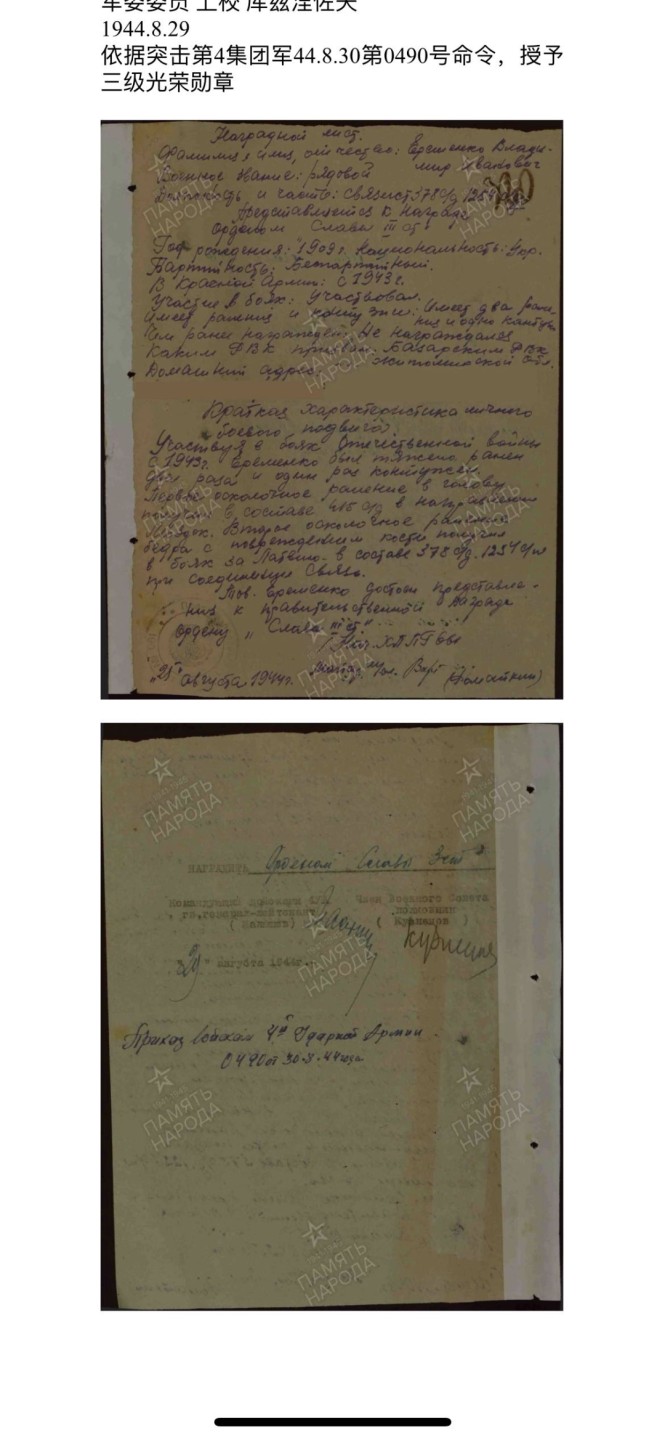 军委委员 上校 库兹涅佐夫
1944.8.29
依据突击第4集团军44.8.30第0490号命令，授予
三级光荣勋章
Наградной лист.
Фамилия, имя, отчество: Еременко Влади-
мир Иванович
Военное звание: рядовой
Должность, и часть: связист 378 с/д 1254
Представляется к награде
Орденом Славы III ст
Год рождения: 1909 г. Национальность: Укр.
Партийность: Беспартийный.
В Красной Армии: с 1943 г.
Участие в боях: Участвовал.
Имеет ранения и контузии: Имеет два ране-
ния и одну контузи
Чем ранее награжден: Не награждался
Каким РВК призван: Базарским РВК
Житомирской обл.
Домашний адрес:
Краткая характеристика личного
боевого подвига.
Участвуя в боях Отечественной войны
с 1943 г. Еременко был тяжело ранен
два раза и один раз контужен.
Первое осколочное ранение в голову
получил в составе 415 с/д в направлении
Второе осколочное ранение
бедра с повреждением кости получил
в боях за Латвию в составе 378 с/д 1254 с/п
при соединении связи.
Тов. Еременко достоин представле-
ния к правительственной награде
ордену „Слава III ст"
Нач.
„25" августа 1944 г.
ПАМЯТЬ
НАРОДА
НАГРАДИТЬ Орденом Славы 3 ст
Командующий войсками 4 УА Член Военного Совета
гв. генерал-лейтенант полковник
29" августа 1944 г.
Приказ войскам 4й Ударной Армии
0490 от 30.8.44 года
ПАМЯТЬ
НАРОДА